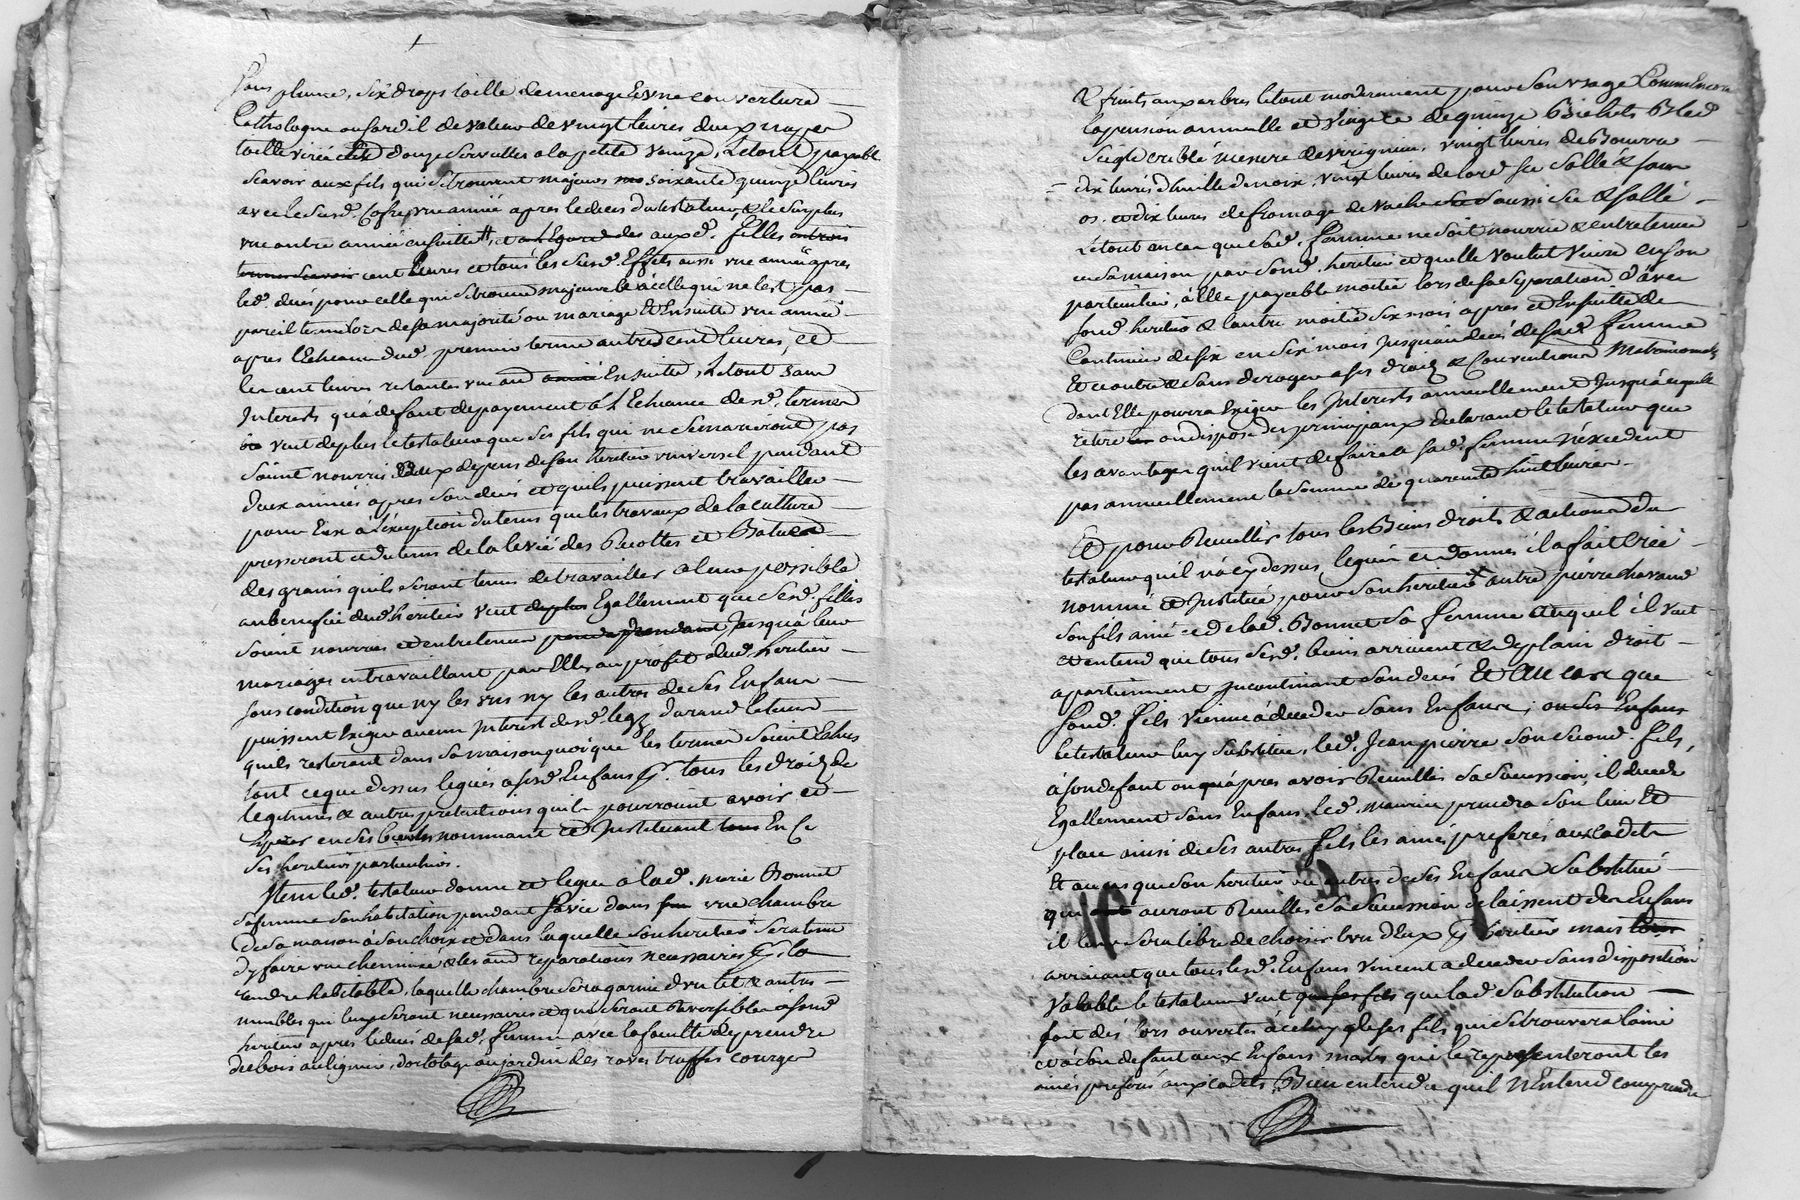 sans plume, six draps toille de menage et une couverture
Cathologne ou sardil de valeur de vingt livres deux nappes
toille virée et douze serviettes a la petite venize, le tout payable
scavoir aux fils qui se trouveront majeurs soixante quinze livres
avec le susd. cofre une année apres le deces du testateur, & le surplus
une autre année ensuitte et aux d. filles
cent livres et tous les susd. effets aussi une année apres
led. deces pour celle qui se trouvera majeure & a celle qui ne l'est pas
pareil terme lors de sa majorité ou mariage et Ensuitte une année
apres l'Echeance dud. premier terme autres cent livres, et
les cent livres restantes une année Ensuitte, le tout sans
Interests qu'a defaut de payement a l'Echeance desd. termes
veut de plus le testateur que ses fils qui ne se marieront pas
soient nourris aux depens de son heritier universel pendant
deux années apres son deces et qu'ils puissent travailler
pour Eux a l'exception du tems que les travaux de la culture
presseront et du tems de la levée des Recoltes et Batue
des grains qu'ils seront tenus de travailler a leur possible
au benefice dud. heritier veut Egallement que sesd. filles
soient nourries et entretenues jusqu'a leur
mariages en travaillant par Elles au profit dud. heritier
sous condition que ny les uns ny les autres de ses Enfans
puissent Exiger aucun Interest desd. legs durant le tems
qu'ils resteront dans sa maison quoique les termes soient Echus
tout ce que dessus legué a sesd. Enfans pr. tous les droits de
legitime & autres pretentions qu'ils pourroient avoir et
Esperer en ses biens les nommant et Instituant En ce
ses heritiers particuliers.
Item led. testateur donne et legue a lad. marie Bonnet
sa femme son habitation pendant sa vie dans une chambre
de sa maison a son choix et dans laquelle son heritier sera tenu
d'y faire une cheminée & les autres reparations necessaires pr. la
rendre habitable, laquelle chambre sera garnie d'un lit & autres
meubles qui luy seront necessaires et qui seront Reversibles a sond.
heritier apres le deces de sad. femme avec la faculté de prendre
de bois au ligner, d'ortolage au jardin & des raves truffes courges
& fruits aux arbres le tout moderement pour son usage Comme Encore
la pension annuelle et viagere de quinze Bichets Bled
seigle criblé mesure de virignieu, vingt livres de Beurre
dix livres d'huille de noix, vingt livres de lard sec sallé & sans
os, et dix livres de fromage de vache aussi sec & sallé
le tout en cas que sad. femme ne soit nourrie & entretenue
en sa maison par sond. heritier et quelle voulut vivre en son
particulier, a Elle payable moitié lors de sa separation d'avec
sond. heritier & l'autre moitié six mois apres et Ensuitte de
Continuer de six en six mois jusqu'au deces de sad. femme
Et ce outre & sans deroger a ses droits & Conventions Matrimoniales
dont Elle pourra Exiger les Interests annuellement jusqu'a ce quelle
retire ou dispose des principaux declarant le testateur que
les avantages qu'il vient de faire a sad. femme n'excedent
pas annuellement la somme de quarente huit livres.
Et pour Recuillir tous les Biens droits & actions du
testateur qu'il n'a cy dessus legués et donnés il a fait créé
nommé et Institué pour son heritier autre pierre chavand
son fils ainé et de lad. Bonnet sa femme auquel il veut
et entend que tous sesd. biens arrivent & de plain droit
apartiennent Incontinant son deces Et Au cas que
sond. fils vienne a deceder sans Enfans, ou ses Enfans
le testateur luy substitue, led. Jean pierre son second fils,
a son defaut ou qu'apres avoir Recuillis sa succession, il decede
Egallement sans Enfans, led. maurice prendra son lieu Et
place ainsi de ses autres fils les ainés preferés aux cadets
Et au cas que son heritier ou autres de ses Enfans substitués
qui auront Recuillis sa succession delaissent des Enfans
il leur sera libre de choisir l'un d'Eux pr. heritier mais
arrivant que tous lesd. Enfans vinrent a deceder sans disposition
valable le testateur veut que lad. substitution
soit dès lors ouverte a celuy de ses fils qui se trouvera l'ainé
et a son defaut aux Enfans mâles qui le representeront les
ainés preferés aux cadets, Bien entendu qu'il n'Entend comprendre